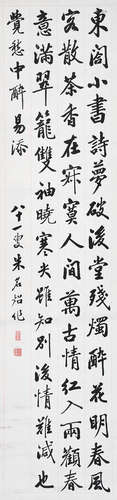 東閣小書詩夢破後堂殘燭醉花明春風
客散茶香在寂寞人間萬古情紅入兩顴春
意滿翠籠雙袖曉寒失雖知別後情難減也
覺愁中醉易添
八十一叟朱石